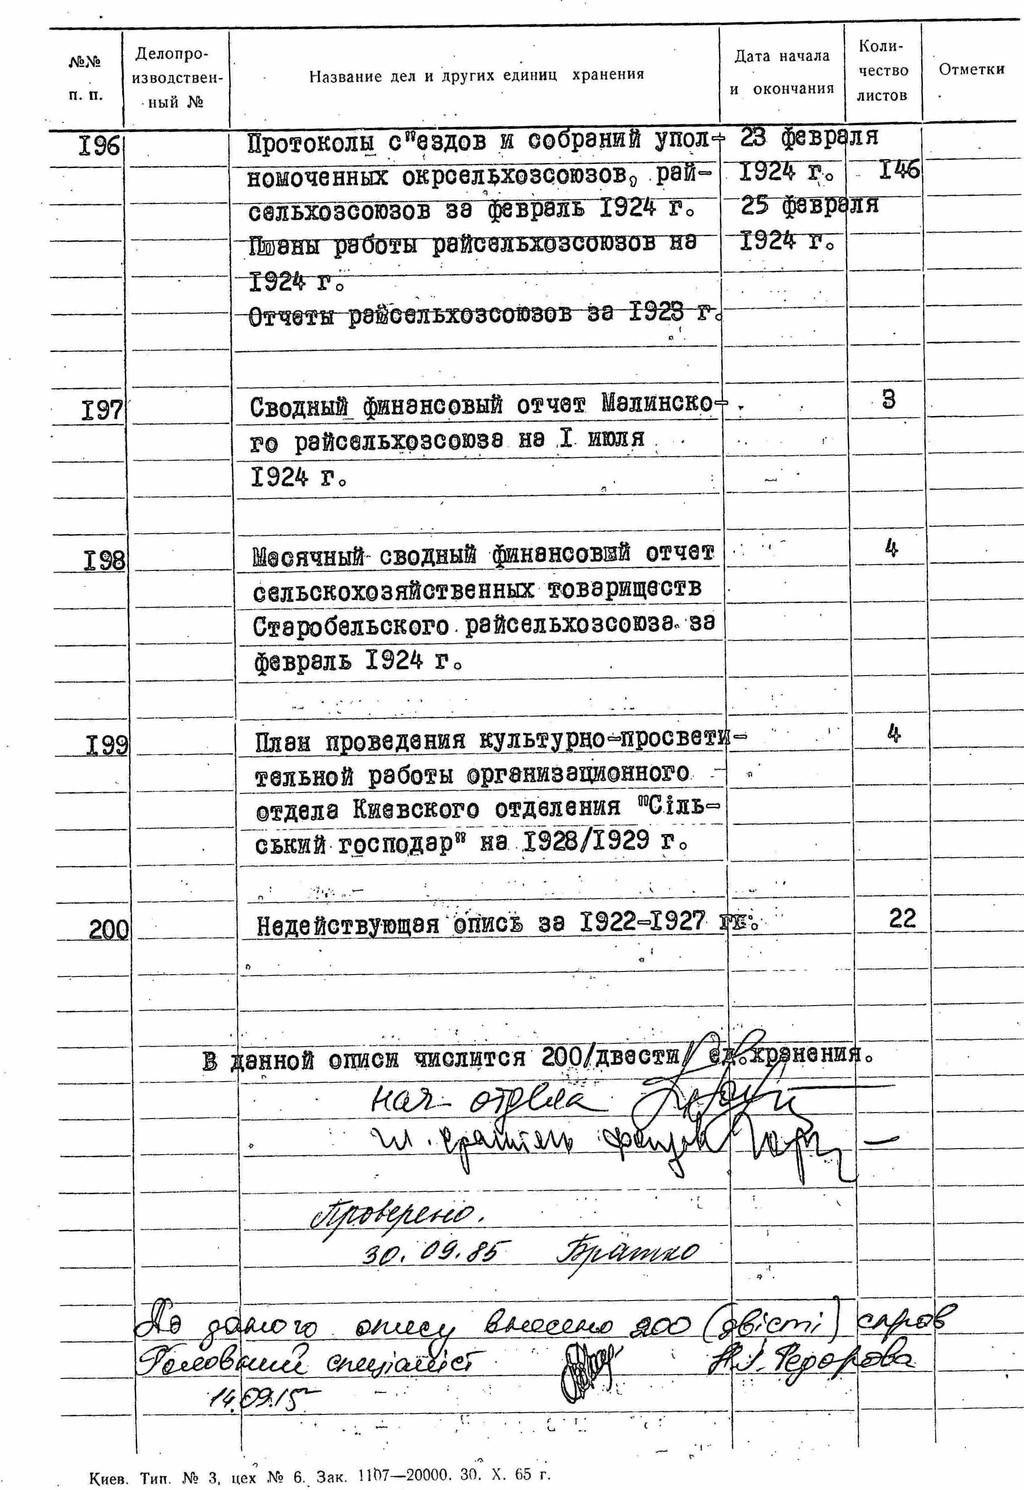 №№ п. п. Делопроизводствен-ный № Название дел и других единиц хранения Дата начала и окончания Коли-чество листов Отметки
196 Протоколы с"ездов и собраний упол- 23 февраля
номоченных окрсельхозсоюзов, рай- 1924 г. 146
сельхозсоюзов за февраль 1924 г. 25 февраля
Планы работы райсельхозсоюзов на 1924 г.
1924 г.
Отчеты райсельхозсоюзов за 1923 г.
197 Сводный финансовый отчет Малинско- 3
го райсельхозсоюза на 1 июля
1924 г.
198 Месячный сводный финансовый отчет 4
сельскохозяйственных товариществ
Старобельского райсельхозсоюза за
февраль 1924 г.
199 План проведения культурно-просвети- 4
тельной работы организационного
отдела Киевского отделения "Сіль-
ський господар" на 1928/1929 г.
200 Недействующая опись за 1922-1927 гг. 22
В данной описи числится 200/двести/ ед.хранения.
Нач. отдела
гл. хранитель фондов
Проверено.
30.09.85 Братко
До даного опису внесено 200 (двісті) справ
Головний спеціаліст Н.І. Федорова
14.09.15
Киев. Тип. № 3, цех № 6. Зак. 1107—20000. 30. X. 65 г.